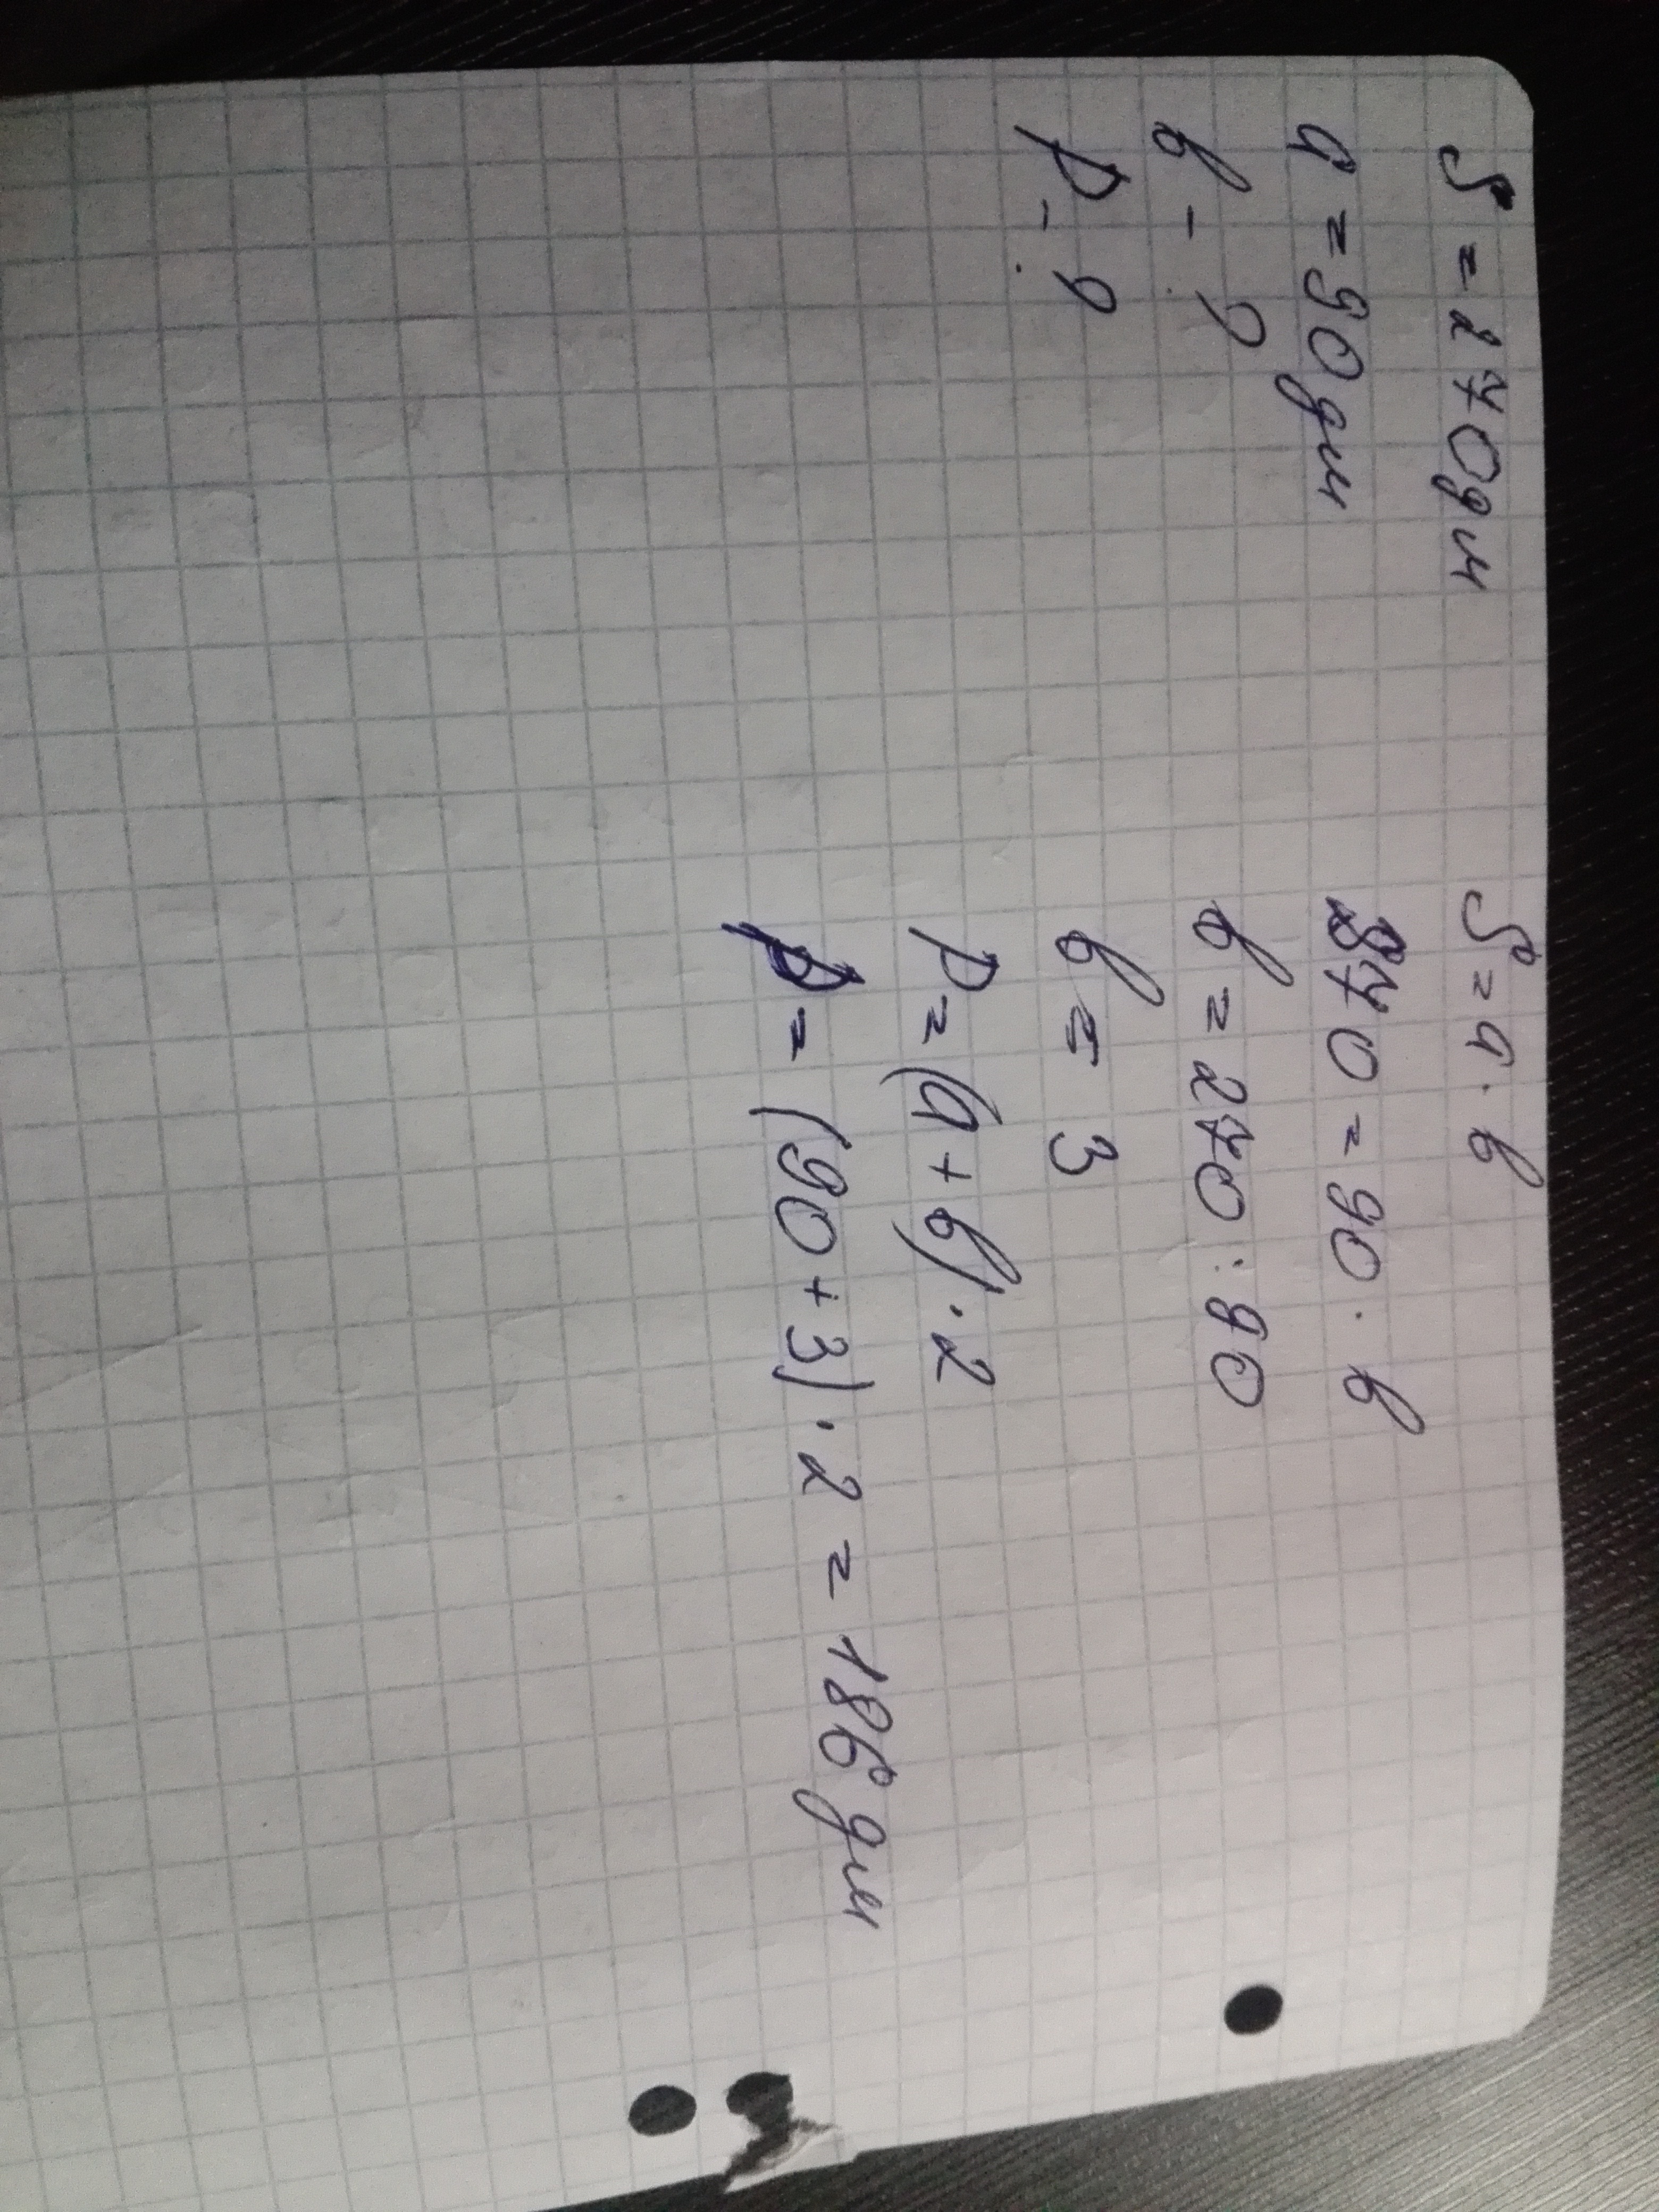 S = 270 дм
a = 90 дм
b - ?
P - ?
S = a · b
270 = 90 · b
b = 270 : 90
b = 3
P = (a + b) · 2
P = (90 + 3) · 2 = 186 дм